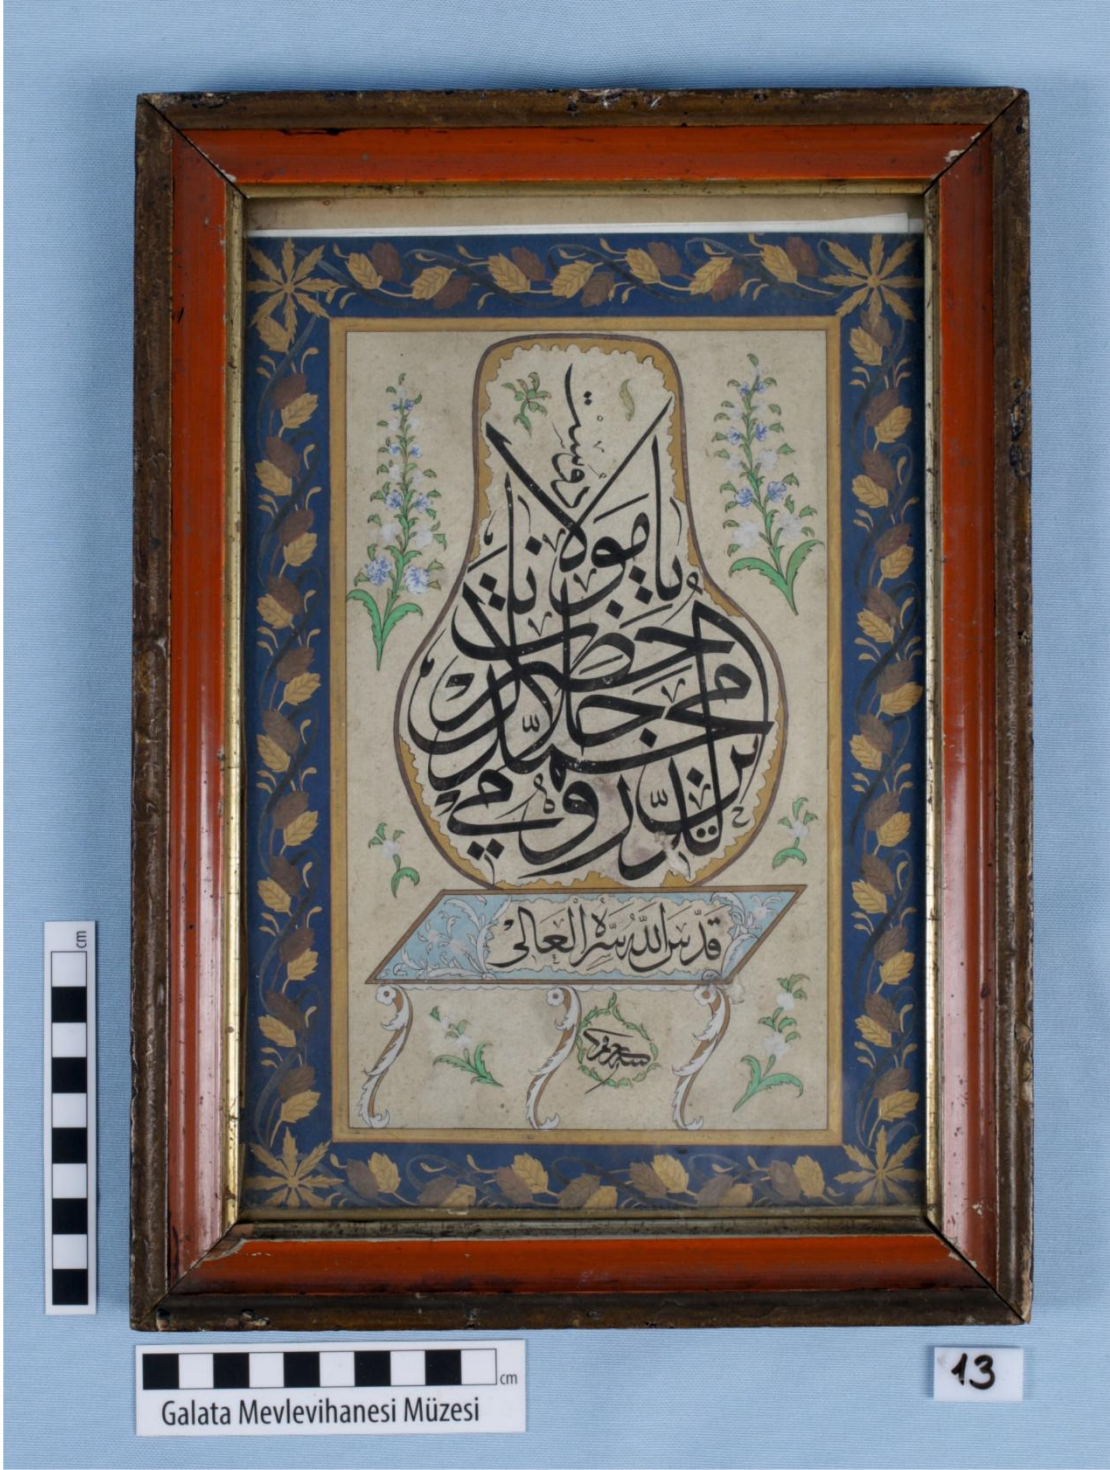 دوست
يا حضرت مولانا
محمد جلال الدين
خداوندكار رومي
قدّس الله سرّه العالى
cm
cm
Galata Mevlevihanesi Müzesi
13